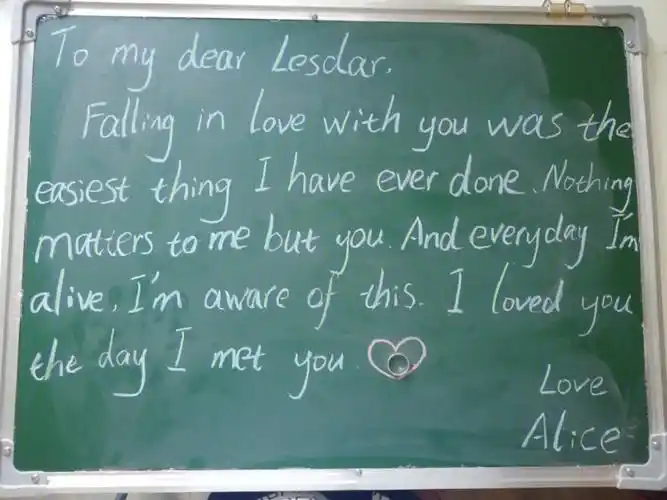 To my dear Lesdar.
Falling in love with you was the
easiest thing I have ever done. Nothing
matters to me but you. And everyday I'm
alive, I'm aware of this. I loved you
the day I met you.
Love
Alice